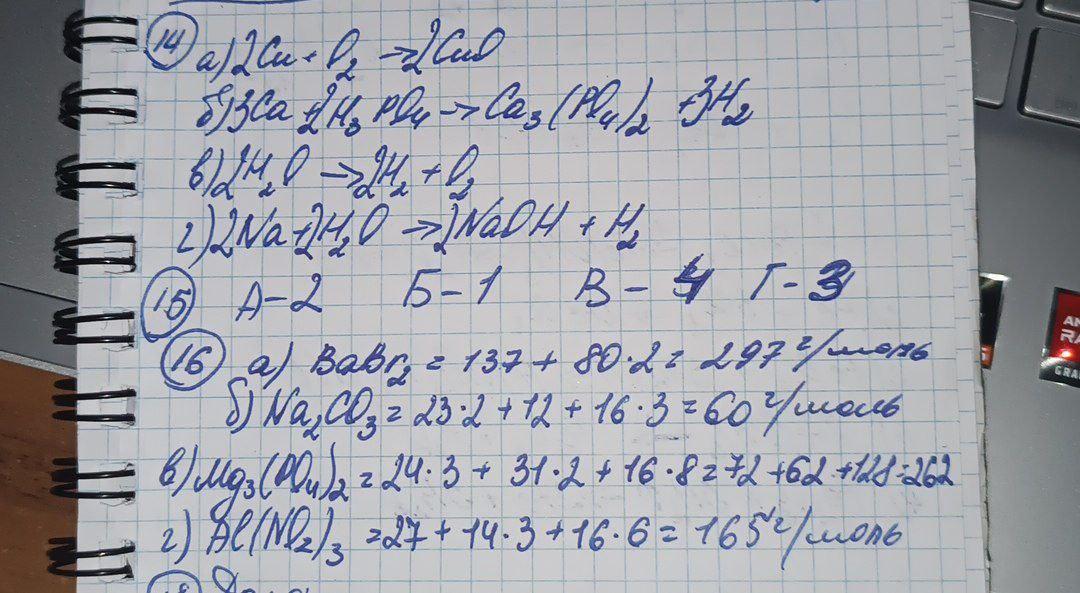 14 а) 2Cu + O₂ → 2CuO
б) 3Ca + 2H₃PO₄ → Ca₃(PO₄)₂ + 3H₂
в) 2H₂O → 2H₂ + O₂
г) 2Na + 2H₂O → 2NaOH + H₂
15 А - 2 Б - 1 В - 4 Г - 3
16 а) BaBr₂ = 137 + 80·2 = 297 г/моль
б) Na₂CO₃ = 23·2 + 12 + 16·3 = 60 г/моль
в) Mg₃(PO₄)₂ = 24·3 + 31·2 + 16·8 = 72 + 62 + 128 = 262
г) Al(NO₂)₃ = 27 + 14·3 + 16·6 = 165 г/моль